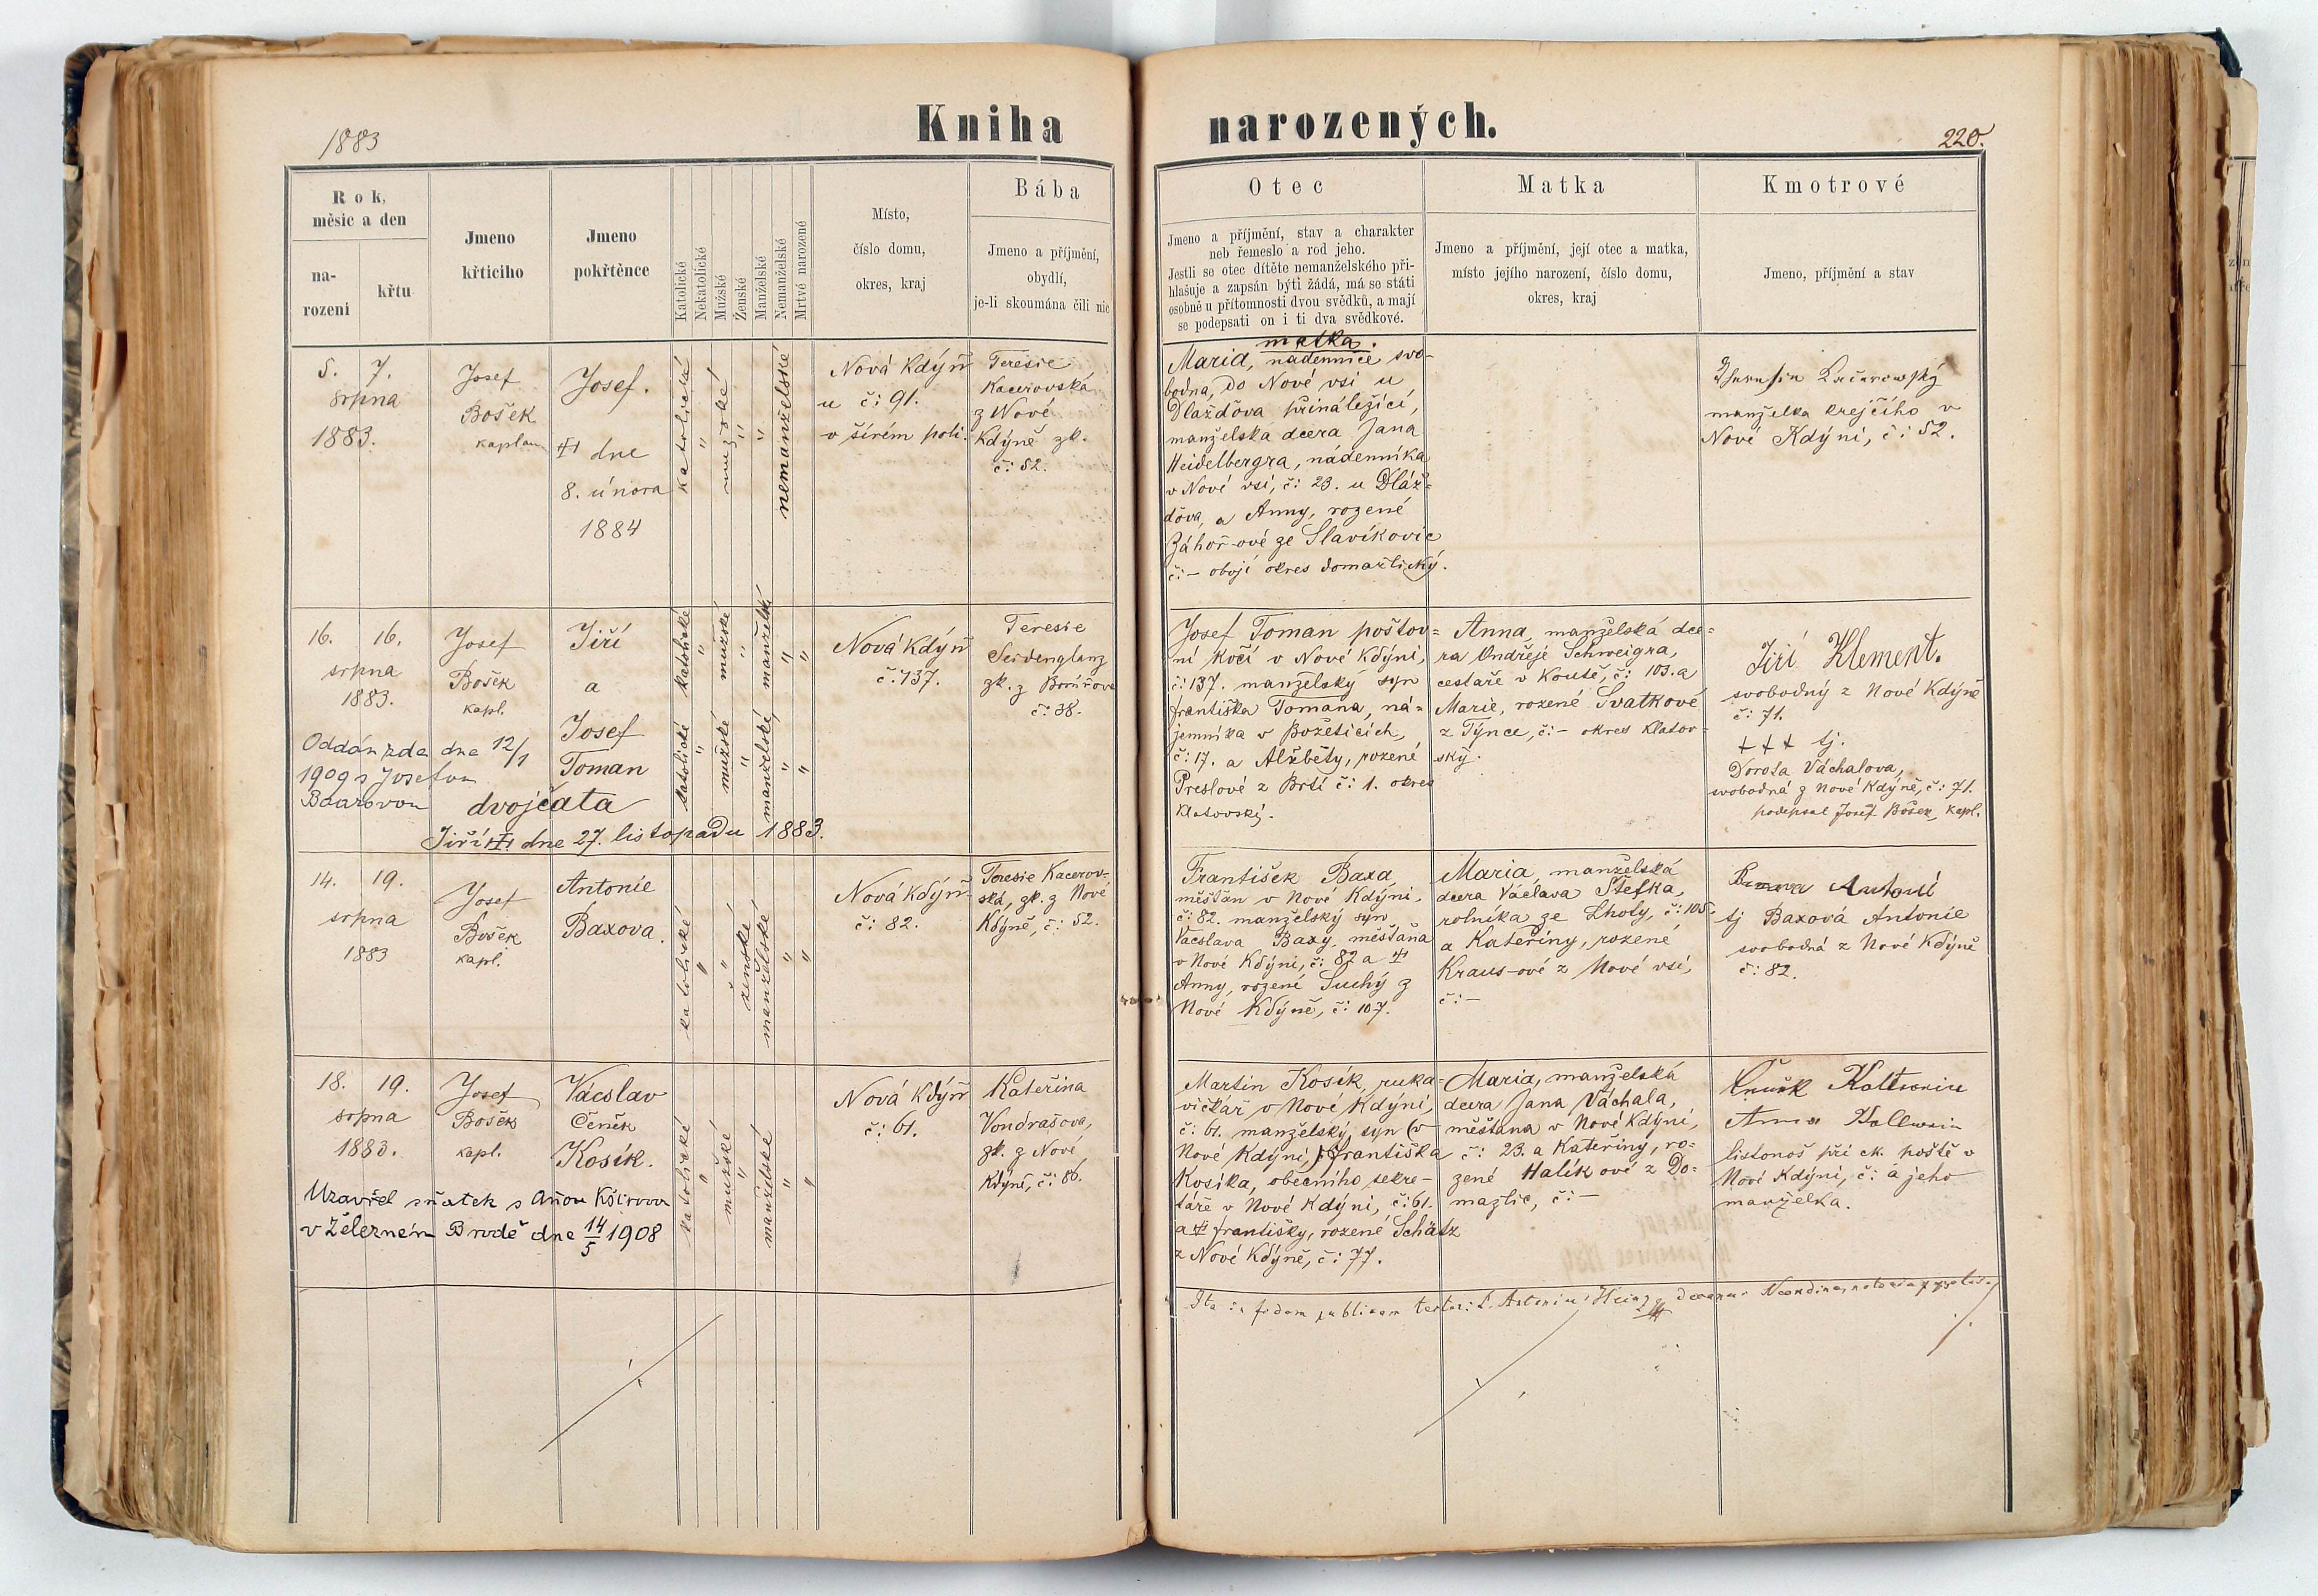 1883
Kniha narozených.
220.
Rok,
měsíc a den
na-
rození
křtu
Jmeno
křticího
Jmeno
pokřtěnce
Katolické
Nekatolické
Mužské
Ženské
Manželské
Nemanželské
Mrtvé narozené
Místo,
číslo domu,
okres, kraj
Bába
Jmeno a příjmění,
obydlí,
je-li skoumána čili nic
Otec
Jmeno a příjmění, stav a charakter
neb řemeslo a rod jeho.
Jestli se otec dítěte nemanželského při-
hlašuje a zapsán býti žádá, má se státi
osobně u přítomnosti dvou svědků, a mají
se podepsati on i ti dva svědkové.
Matka
Jmeno a příjmění, její otec a matka,
místo jejího narození, číslo domu,
okres, kraj
Kmotrové
Jmeno, příjmění a stav
5. 7.
srpna
1883.
Josef
Bošek
kaplan
Josef.
dne
8. února
1884
katolické
"
mužské
"
"
nemanželské
Nová Kdýň
u č: 91.
v šírém poli.
Teresie
Kacerovská
z Nové
Kdýně zk.
č: 52.
matka.
Maria, nádennice svo-
bodna, do Nové vsi u
Dlažďova přináležící,
manželska dcera Jana
Heidelbergra, nádenníka
v Nové vsi, č: 23. u Dláž-
dova, a Anny, rozené
Záhoř-ové ze Slavíkovic
č:- obojí okres domažlický.
manželka krejčího v
Nové Kdýni, č: 52.
16. 16.
srpna
1883.
Oddán zde dne 12/1
1909 s Josefou
Baarovou
Josef
Bošek
kapl.
Jiří
a
Josef
Toman
dvojčata
Jiří dne 27. listopadu 1883.
katolické
"
mužské
"
manželské
"
"
katolické
"
mužské
"
manželské
"
"
Nová Kdýň
č: 137.
Teresie
Seidenglanz
zk. z
č: 38.
Josef Toman poštov-
ní kočí v Nové Kdýni,
č: 137. manželský syn
Františka Tomana, ná-
jemníka v Božeticích,
č: 17. a Alžběty, rozené
Preslové z Brtí č: 1. okres
klatovský.
Anna, manželská dce-
ra Ondřeje Schweigra,
cestaře v Koutě, č: 103. a
Marie, rozené Svatkové
z Týnce, č:- okres klatov-
ský.
Jiří Klement.
svobodný z Nové Kdýně
č: 71.
+++ tj.
Dorota Váchalova,
svobodná z Nové Kdýně, č: 71.
podepsal Josef Bošek, kapl.
14. 19.
srpna
1883
Josef
Bošek
kapl.
Antonie
Baxova.
katolické
"
"
ženské
manželské
"
"
Nová Kdýň
č: 82.
Teresie Kacerov-
ská, zk. z Nové
Kdýně, č: 52.
František Baxa
měšťan v Nové Kdýni,
č: 82. manželský syn
Vácslava Baxy, měšťana
v Nové Kdýni, č: 82 a
Anny, rozené Suchý z
Nové Kdýně, č: 107.
Maria, manželská
dcera Václava Štefka,
rolníka ze Lhoty, č: 105.
a Kateřiny, rozené
Kraus-ové z Nové vsi,
č:-
Antonií
tj Baxová Antonie
svobodná z Nové Kdýně
č: 82.
18. 19.
srpna
1883.
Uzavřel sňatek s Annou
v Železném Brodě dne 14/5 1908
Josef
Bošek
kapl.
Vácslav
Čeněk
Kosík.
katolické
"
mužské
"
manželské
"
"
Nová Kdýň
č: 61.
Kateřina
Vondrašova,
zk. z Nové
Kdýně, č: 86.
Martin Kosík, ruka-
vičkář v Nové Kdýni,
č: 61. manželský syn (v
Nové Kdýni) Františka
Kosíka, obecního sekre-
táře v Nové Kdýni, č: 61.
a Františky, rozené Schätz
z Nové Kdýně, č: 77.
Maria, manželská
dcera Jana Váchala,
měšťana v Nové Kdýni,
č: 23. a Kateřiny, ro-
zené Halík ové z Do-
mažlic, č:-
Anna
listonoš při ck. poště v
Nové Kdýni, č: a jeho
manželka.
Ita in fidem publicam testor: P. Antonius